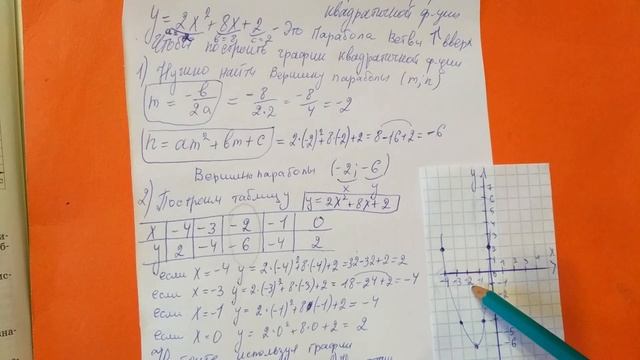 квадратичной ф-ции
y = 2x² + 8x + 2 - Это парабола ветви ↑ вверх
a=2 в=8 c=2
Чтобы построить график квадратичной ф-ции
1) Нужно найти вершину параболы (m; n)
m = -в/2a = -8/2·2 = -8/4 = -2
n = am² + вm + c = 2·(-2)²+8·(-2)+2 = 8-16+2 = -6
Вершина параболы (-2; -6)
x y
2) Построим таблицу y = 2x² + 8x + 2
x -4 -3 -2 -1 0
y 2 -4 -6 -4 2
если x = -4 y = 2·(-4)²+8·(-4)+2 = 32-32+2 = 2
если x = -3 y = 2·(-3)²+8·(-3)+2 = 18-24+2 = -4
если x = -1 y = 2·(-1)²+8·(-1)+2 = -4
если x = 0 y = 2·0²+8·0+2 = 2
используя график